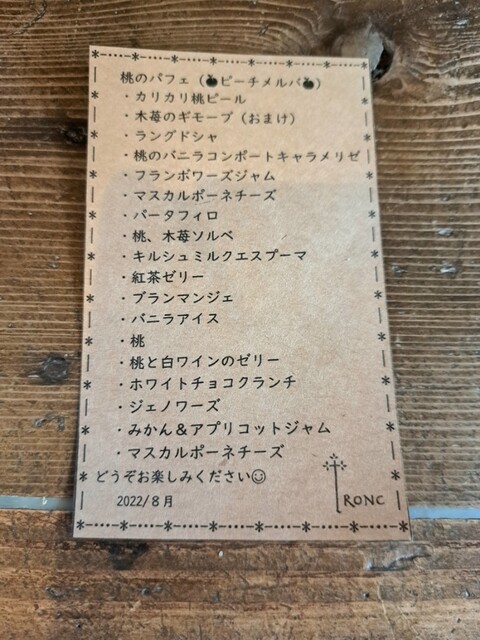 桃のパフェ（🍎ピーチメルバ🍎）
・カリカリ桃ピール
・木苺のギモーブ（おまけ）
・ラングドシャ
・桃のバニラコンポートキャラメリゼ
・フランボワーズジャム
・マスカルポーネチーズ
・パータフィロ
・桃、木苺ソルベ
・キルシュミルクエスプーマ
・紅茶ゼリー
・ブランマンジェ
・バニラアイス
・桃
・桃と白ワインのゼリー
・ホワイトチョコクランチ
・ジェノワーズ
・みかん＆アプリコットジャム
・マスカルポーネチーズ
どうぞお楽しみください☺
2022/８月
TRONC